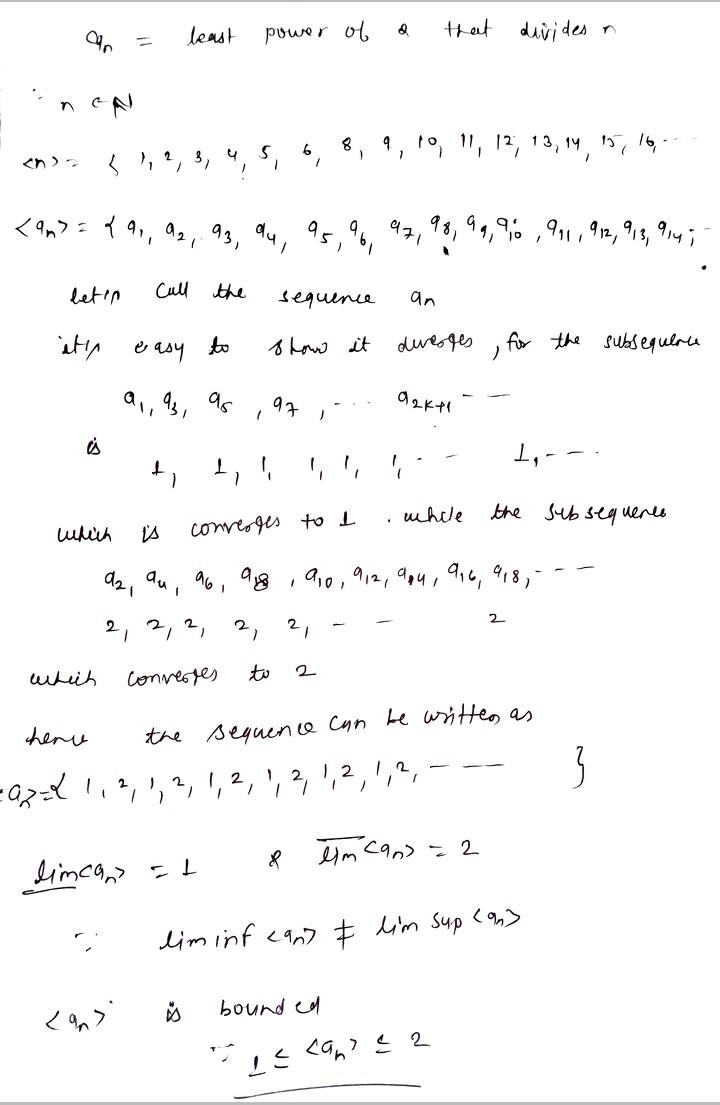 a_n = least power of 2 that divides n
∵ n ∈ N
<n> = { 1, 2, 3, 4, 5, 6, 8, 9, 10, 11, 12, 13, 14, 15, 16, ---
<a_n> = { a_1, a_2, a_3, a_4, a_5, a_6, a_7, a_8, a_9, a_10, a_11, a_12, a_13, a_14, --
let's call the sequence a_n
it's easy to show it diverges, for the subsequence
a_1, a_3, a_5, a_7, --- a_2k+1 --
is
1, 1, 1, 1, 1, 1, -- 1, ---
which is converges to 1. while the subsequence
a_2, a_4, a_6, a_8, a_10, a_12, a_14, a_16, a_18, ---
2, 2, 2, 2, 2, -- 2
which converges to 2
hence the sequence can be written as
<a_n> = { 1, 2, 1, 2, 1, 2, 1, 2, 1, 2, 1, 2, --- }
lim<a_n> = 1 & lim<a_n> = 2
∵ lim inf <a_n> ≠ lim sup <a_n>
<a_n> is bounded
∵ 1 ≤ <a_n> ≤ 2